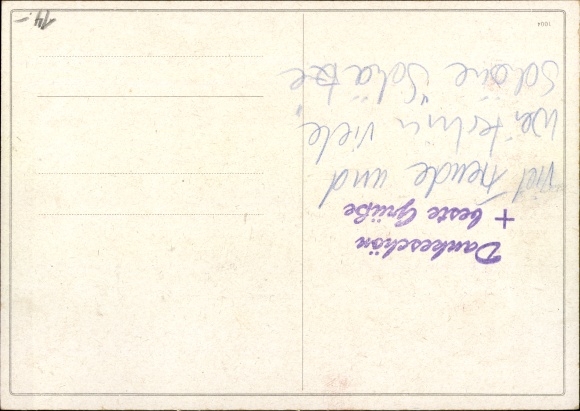 Dankeschön
+ beste Grüße
viel Freude und
weiterhin viele
Schöne Schätze
1004
14,-